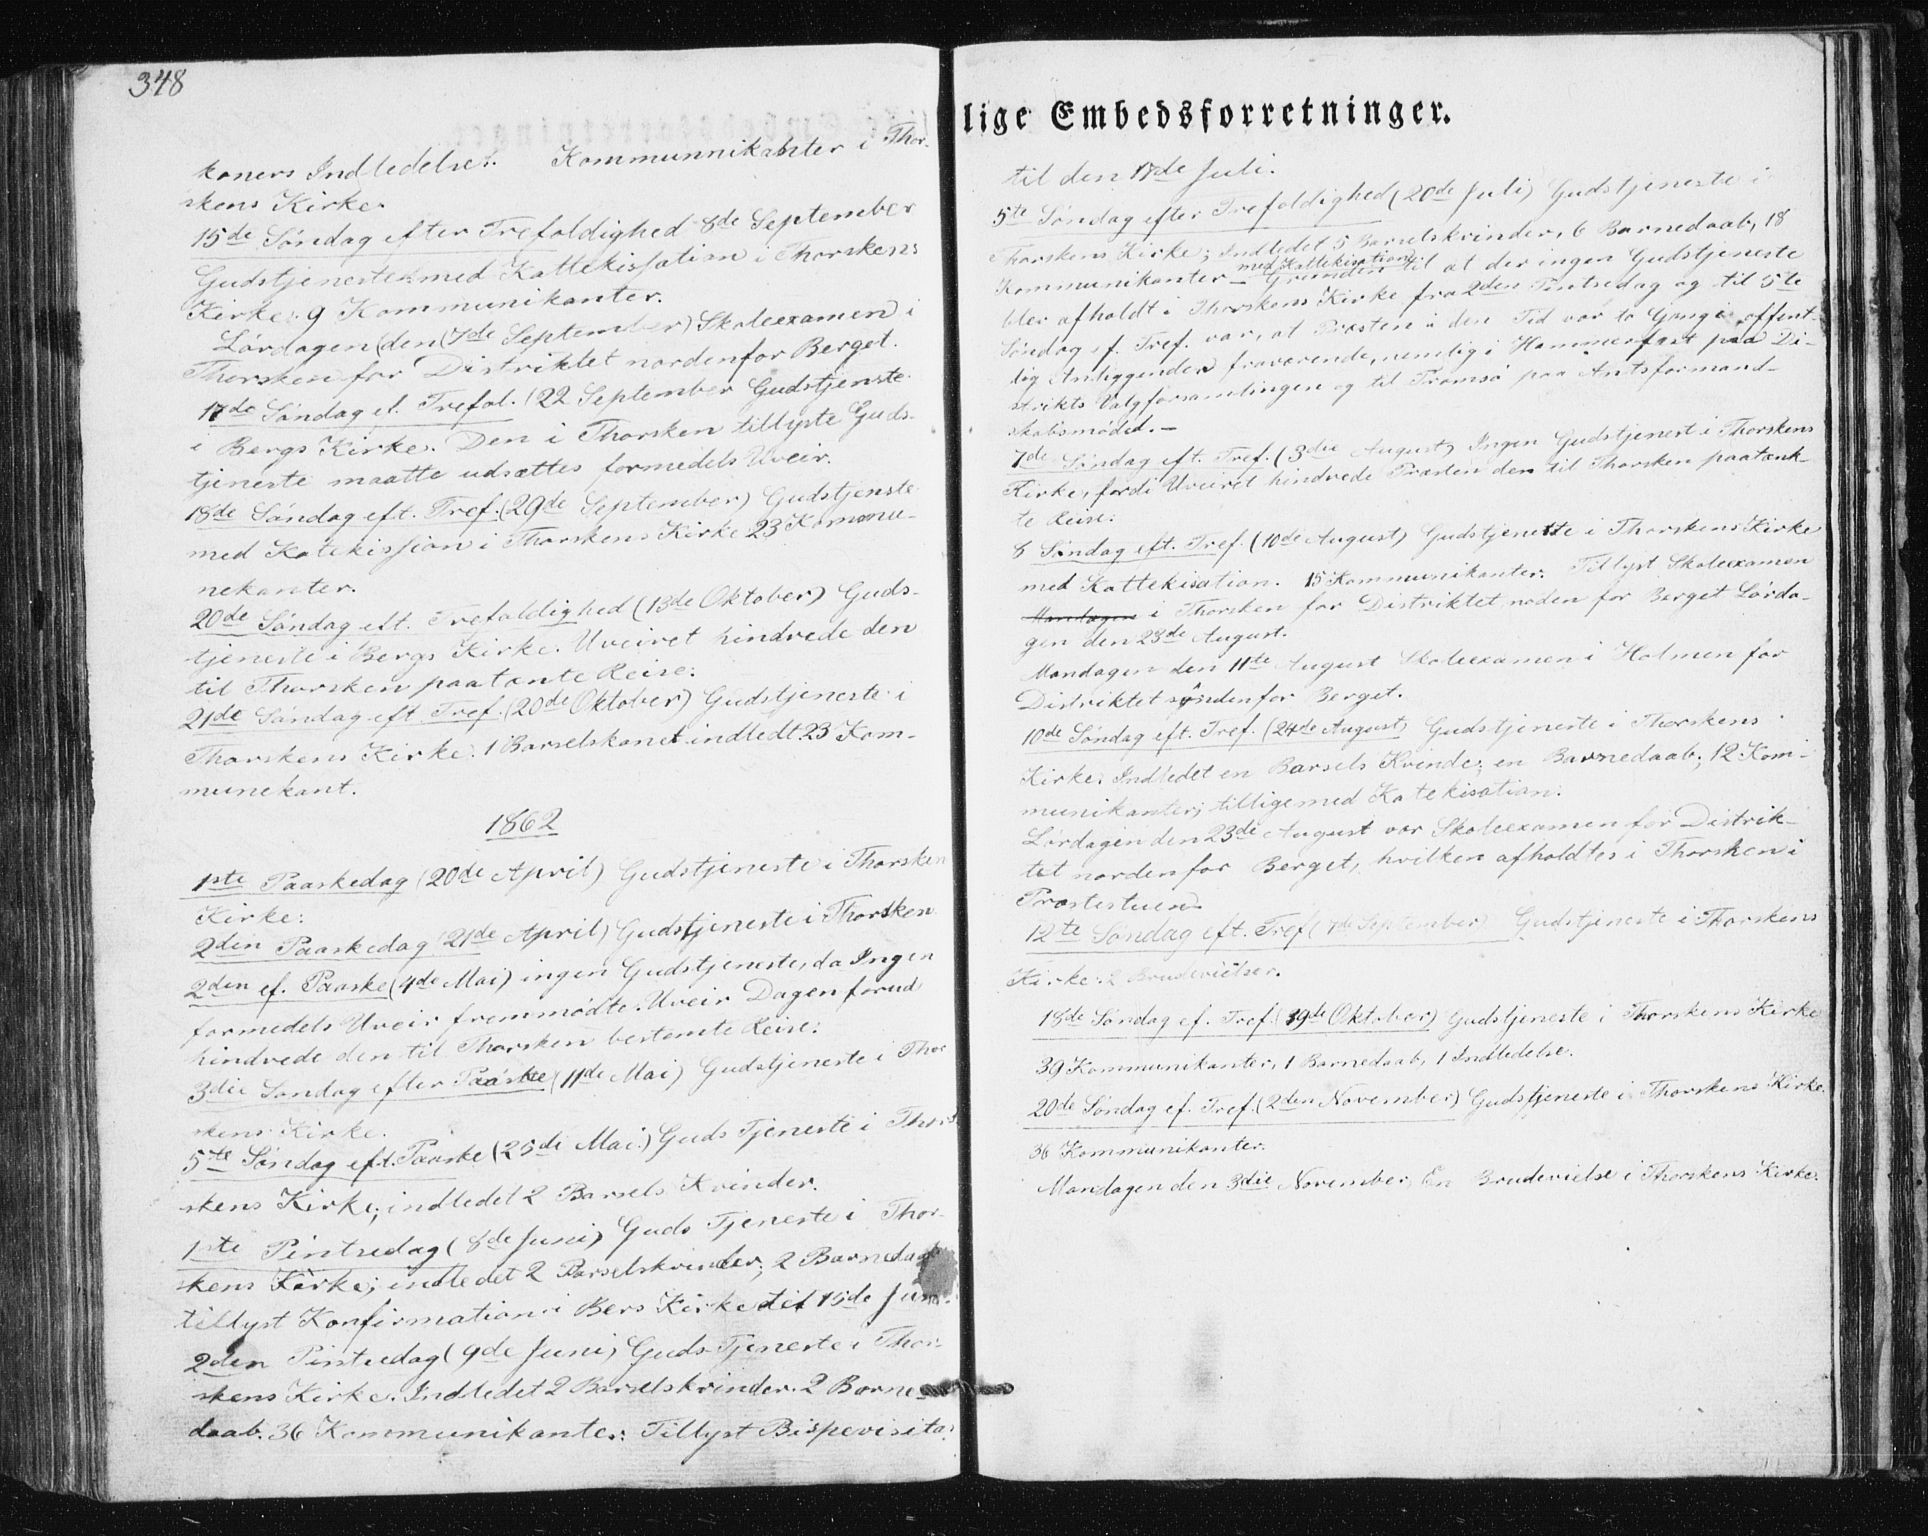 348
koners Indledelse. Kommunnikanter i Thor-
skens Kirke.
15de Søndag efter Trefoldighed 8de September
Gudstjeneste med Kattekisation i Thorskens
Kirke: 9 Kommunikanter.
Lørdagen (den (7de September) Skoleexamen i
Thorsken for Distriktet nordenfor Berget.
17de Søndag ef. Trefol. (22 September Gudstjenste
i Bergs Kirke. Den i Thorsken tillyste Guds-
tjeneste maatte udsættes formedels Uveir.
18de Søndag eft. Tref. (29de September) Gudstjenste
med Katekission i Thorskens Kirke 23 Kommu-
nekanter.
20de Søndag eft. Trefoldighed (13de Oktober) Guds-
tjeneste i Bergs Kirke. Uveiret hindrede den
til Thorsken paatænte Reise.
21de Søndag eft. Tref. (20de Oktober) Gudstjeneste i
Thorskens Kirke. 1 Barselskone indledt 23 Kom-
munekant.
1862
1ste Paaskedag (20de April) Gudstjeneste i Thorsken
Kirke:
2den Paaskedag (21de April) Gudstjeneste i Thorsken
2den ef. Paaske (4de Mai) ingen Gudstjeneste, da Ingen
formedels Uveir fremmødte. Uveir Dagen forud
hindrede den til Thorsken bestemte Reise.
3die Søndag efter Paaske (11de Mai) Gudstjeneste i Thor
skens Kirke.
5te Søndag eft. Paaske (25de Mai.) Guds Tjeneste i Thor
skens Kirke; indledet 2 Barsels Kvinder.
1ste Pintsedag (8de Juni) Guds Tjeneste i Thor-
skens Kirke; indledet 2 Barselskvinder; 2 Barnedaab
tillyst Konfirmation i Bers Kirke til 15de Juni.
2den Pintsedag (9de Juni) Guds Tjeneste i Thor-
skens Kirke. Indledet 2 Barselskvinder. 2 Barne-
daab. 36 Kommunikanter: Tillyst Bispevisitas
lige Embedsforretninger.
til den 17de Juli.
5te Søndag efter Trefoldighed (20de Juli) Gudstjeneste i
Thorskens Kirke; Indledet 5 Barselskvinder, 6 Barnedaab, 18
med Kattekisation
Kommunikanter – Grunden til at der ingen Gudstjeneste
blev afholdt i Thorskens Kirke fra 2den Pintsedag og til 5te
Søndag ef. Tref. var, at Præsten i den Tid var to Gange i offent-
lig Anliggender fraværende, nemlig i Hammerfest paa Di-
strikts Valgforsamlingen og til Tromsø paa Amtsformand-
skabsmødet. –
7de Søndag eft. Tref. (3die August) Ingen Gudstjenest i Thorskens
Kirke, fordi Uveiret hindrede Præsten den til Thorsken paatænk-
te Reise.
8 Søndag eft. Tref. (10de August) Gudstjeneste i Thorskens Kirke
med Kattekisation. 15 Kommunikanter. Tillyst Skoleexamen
Mandagen i Thorsken for Distriktet noden for Berget Lørda-
gen den 23de August.
Mandagen den 11te August Skoleexamen i Holmen for
Distriktet søndenfor Berget.
10de Søndag eft. Tref. (24de August) Gudstjeneste i Thorskens
Kirke. Indledet en Barsels Kvinde, en Barnedaab, 12 Kom-
munikanter; tilligemed Katekisation.
Lørdagen den 23de August var Skoleexamen for Distrik-
tet nordenfor Berget, hvilken afholdtes i Thorsken i
Præstestuen
12te Søndag eft. Tref. (7de September) Gudstjeneste i Thorskens
Kirke. 2 Brudevielser.
18de Søndag ef. Tref. (19de Oktober) Gudstjeneste i Thorskens Kirke
39 Kommunikanter, 1 Barnedaab, 1 Indledelse.
20de Søndag ef. Tref. (2den November) Gudstjeneste i Thorskens Kirke.
36 Kommunikanter.
Mandagen den 3die November, En Brudevielse i Thorskens Kirke.